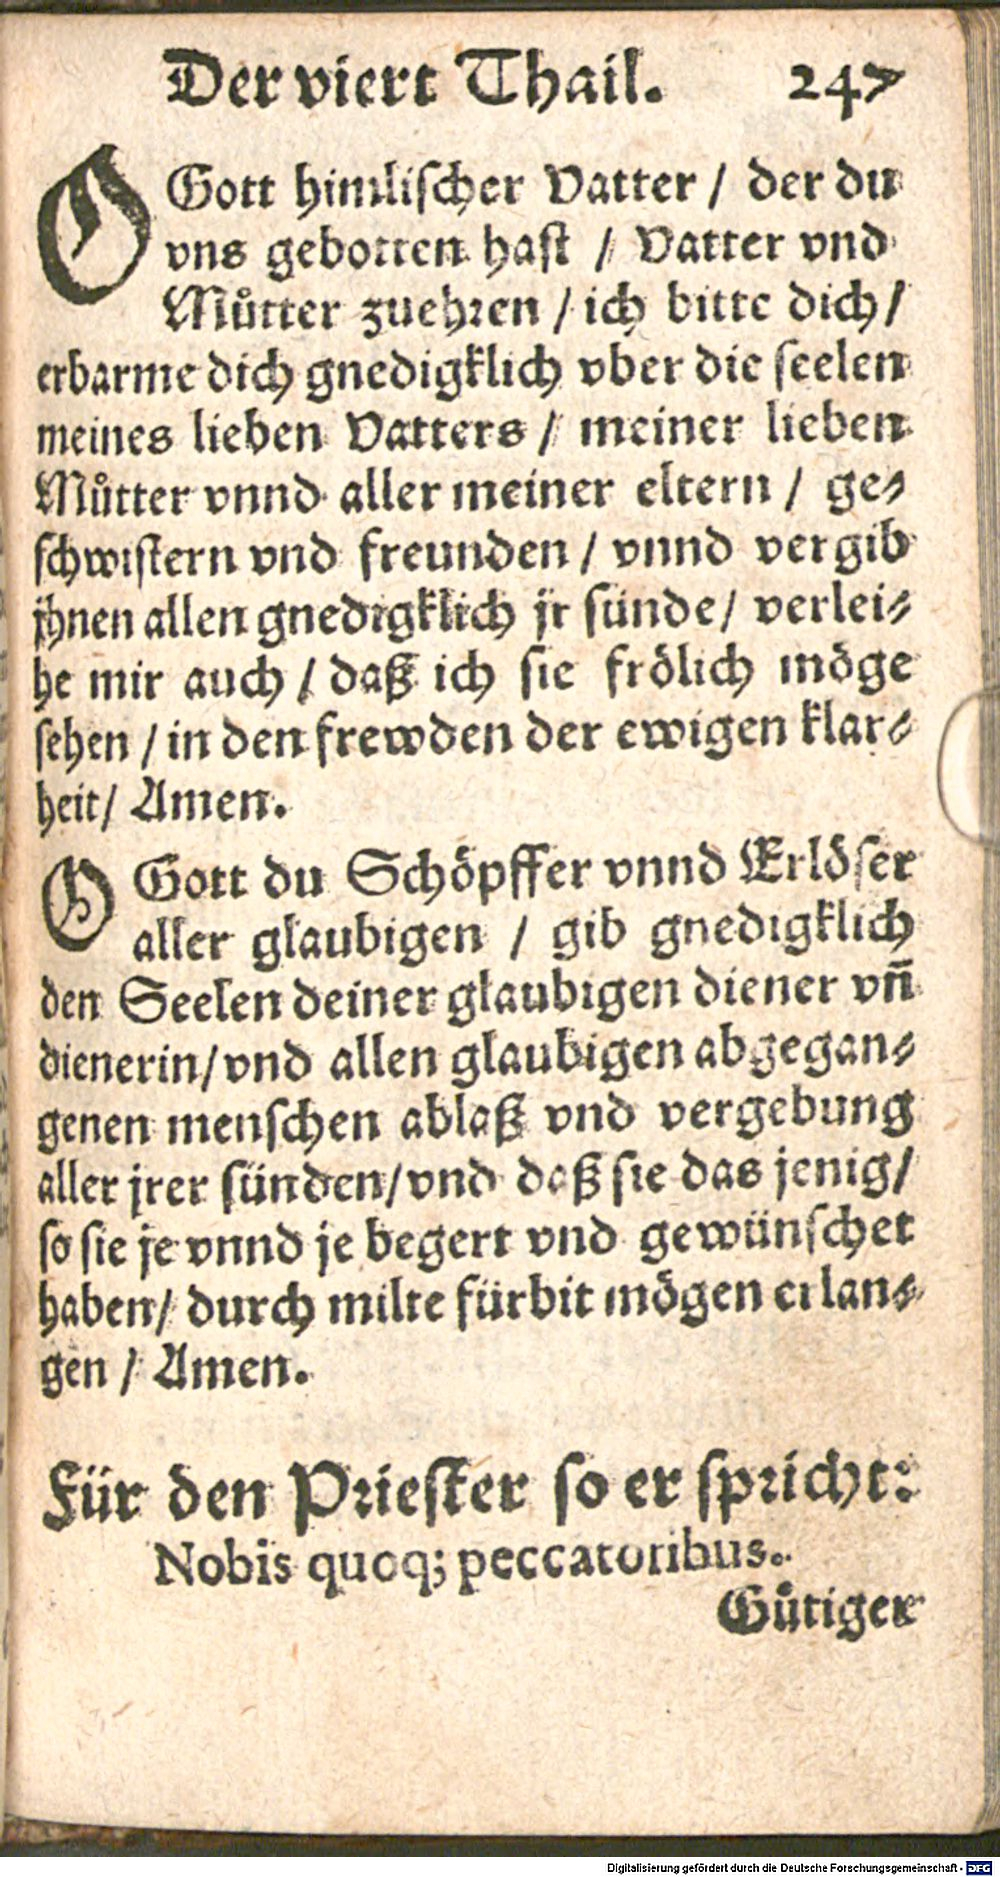 Der viert Thail. 247
O Gott himlischer Vatter / der du
vns gebotten hast / Vatter vnd
Můtter zuehren / ich bitte dich /
erbarme dich gnedigklich vber die seelen
meines lieben Vatters / meiner lieben
Můtter vnnd aller meiner eltern / ge⸗
schwistern vnd freunden / vnnd vergib
jhnen allen gnedigklich jr sünde / verlei⸗
he mir auch / daß ich sie frölich möge
sehen / in den frewden der ewigen klar⸗
heit / Amen.
O Gott du Schöpffer vnnd Erlöser
aller glaubigen / gib gnedigklich
den Seelen deiner glaubigen diener vñ
dienerin / vnd allen glaubigen abgegan⸗
genen menschen ablaß vnd vergebung
aller jrer sünden / vnd daß sie das jenig /
so sie je vnnd je begert vnd gewünschet
haben / durch milte fürbit mögen erlan⸗
gen / Amen.
Für den Priester so er spricht:
Nobis quoq; peccatoribus.
Gůtiger
Digitalisierung gefördert durch die Deutsche Forschungsgemeinschaft - DFG